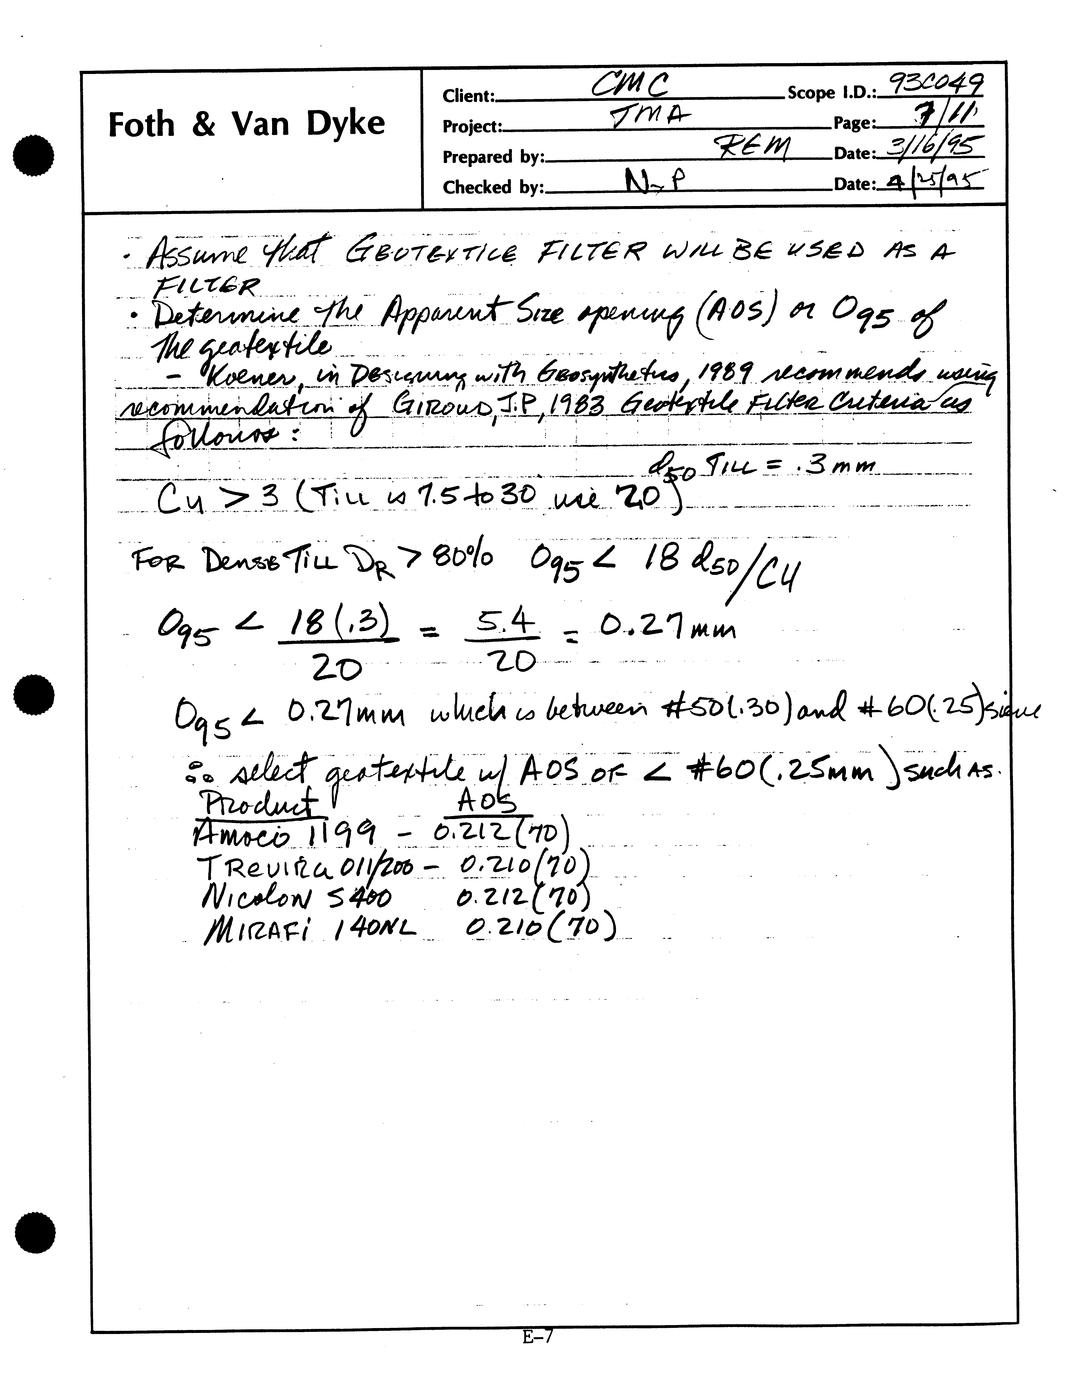 Foth & Van Dyke
Client: CMC Scope I.D.: 93C049
Project: TMA Page: 7/11
Prepared by: REM Date: 3/16/95
Checked by: Date: 4/25/95
· Assume that GEOTEXTILE FILTER WILL BE USED AS A
FILTER
· Determine the Apparent Size opening (AOS) or O95 of
the geotextile
- Koener, in Designing with Geosynthetics, 1989 recommends using
recommendation of GIROUD, J.P, 1983 Geotextile Filter Criteria as
follows:
d50 TILL = .3mm
Cu > 3 (TILL is 7.5 to 30 use 20)
FOR DENSE TILL DR > 80% O95 < 18 d50/CU
O95 < 18(.3)/20 = 5.4/20 = 0.27mm
O95 < 0.27mm which is between #50(.30) and #60(.25) sieve
∴ select geotextile w/ AOS OF < #60(.25mm) such as.
Product AOS
Amoco 1199 - 0.212(70)
TREVIRA 011/200 - 0.210(70)
Nicolon S400 0.212(70)
MIRAFI 140NL 0.210(70)
E-7